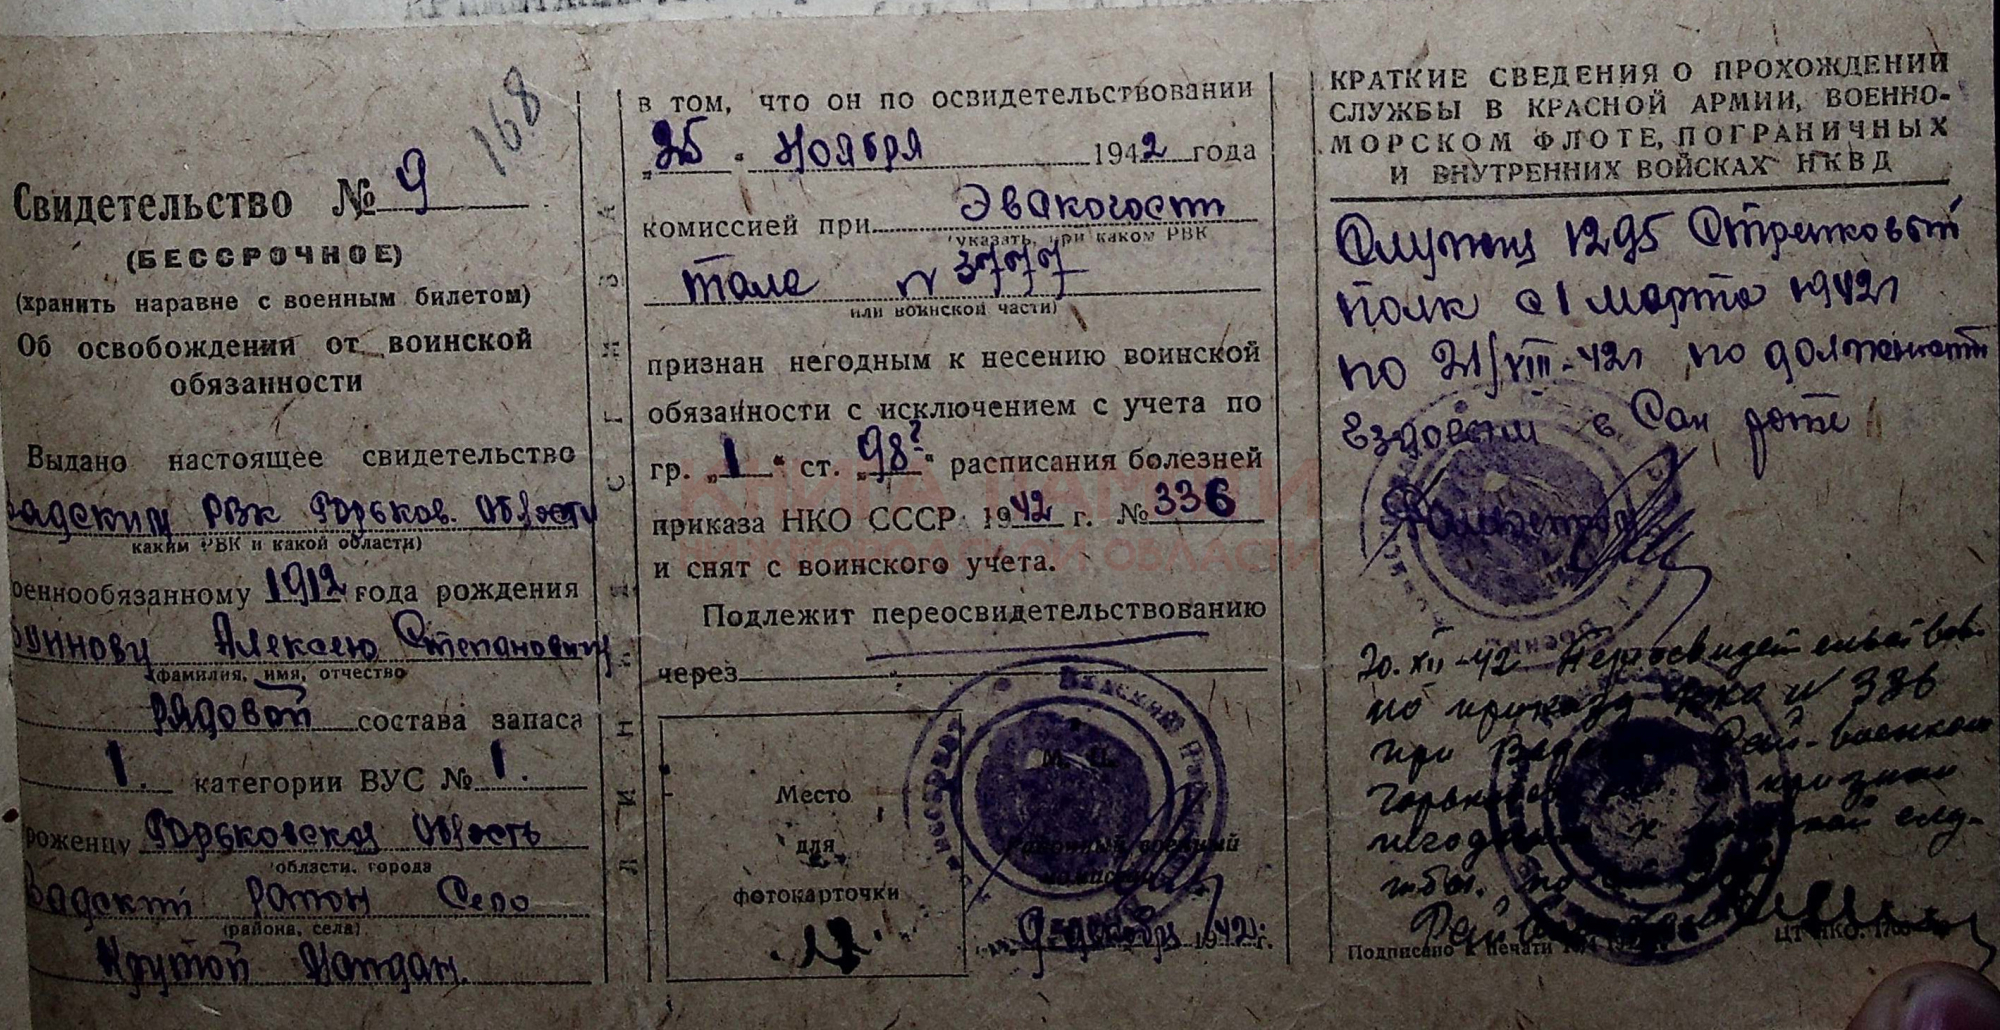 168
Свидетельство № 9
(БЕССРОЧНОЕ)
(хранить наравне с военным билетом)
Об освобождении от воинской
обязанности
Выдано настоящее свидетельство
Вадским РВК Горьков. Область
каким РВК и какой области)
оеннообязанному 1912 года рождения
Алексею Степанович
(фамилия, имя, отчество
рядовой состава запаса
1. категории ВУС № 1.
роженцу Горьковская Область
области, города
Вадский район Село
(района, села)
Крутой Майдан.
в том, что он по освидетельствовании
„25 " Ноября 1942 года
комиссией при Эвакогоспи
(указать, при каком РВК
тале N 3777
или воинской части)
признан негодным к несению воинской
обязанности с исключением с учета по
гр. „1" ст. „98" расписания болезней
приказа НКО СССР 1942 г. № 336
и снят с воинского учета.
Подлежит переосвидетельствованию
через
М. П.
Место
для
фотокарточки
Районный военный
9 декабря 1942 г.
КРАТКИЕ СВЕДЕНИЯ О ПРОХОЖДЕНИИ
СЛУЖБЫ В КРАСНОЙ АРМИИ, ВОЕННО-
МОРСКОМ ФЛОТЕ, ПОГРАНИЧНЫХ
И ВНУТРЕННИХ ВОЙСКАХ НКВД
Служил 1295 Стрелковый
полк с 1 марта 1942г
по 21/VIII-42г по должности
Ездовым в Сан роте
20.XII-42 Переосвидетельствован
по приказу НКО N 336
при Рай-военком
признан
к
Подписано к печати
КНИГА ПАМЯТИ
НИЖЕГОРОДСКОЙ ОБЛАСТИ